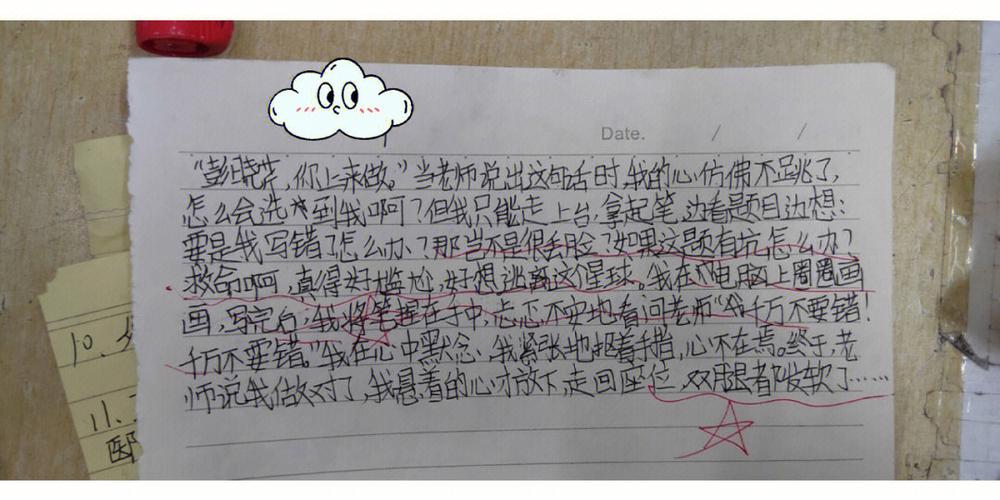 Date. / /
"彭晓芹,你上来做。"当老师说出这句话时,我的心仿佛不跳了,
怎么会选择到我啊?但我只能走上台,拿起笔,边看题目边想:
要是我写错了怎么办?那岂不是很丢脸?如果这题有坑怎么办?
救命啊,真得好尴尬,好想逃离这个星球。我在电脑上圈圈画
画,写完后,我将笔握在手中,忐忑不安地看问老师"千万不要错!
千万不要错。"我在心中默念,我紧张地抠着手指,心不在焉。终于,老
师说我做对了,我悬着的心才放下,走回座位,双腿都发软了……
10.
11.